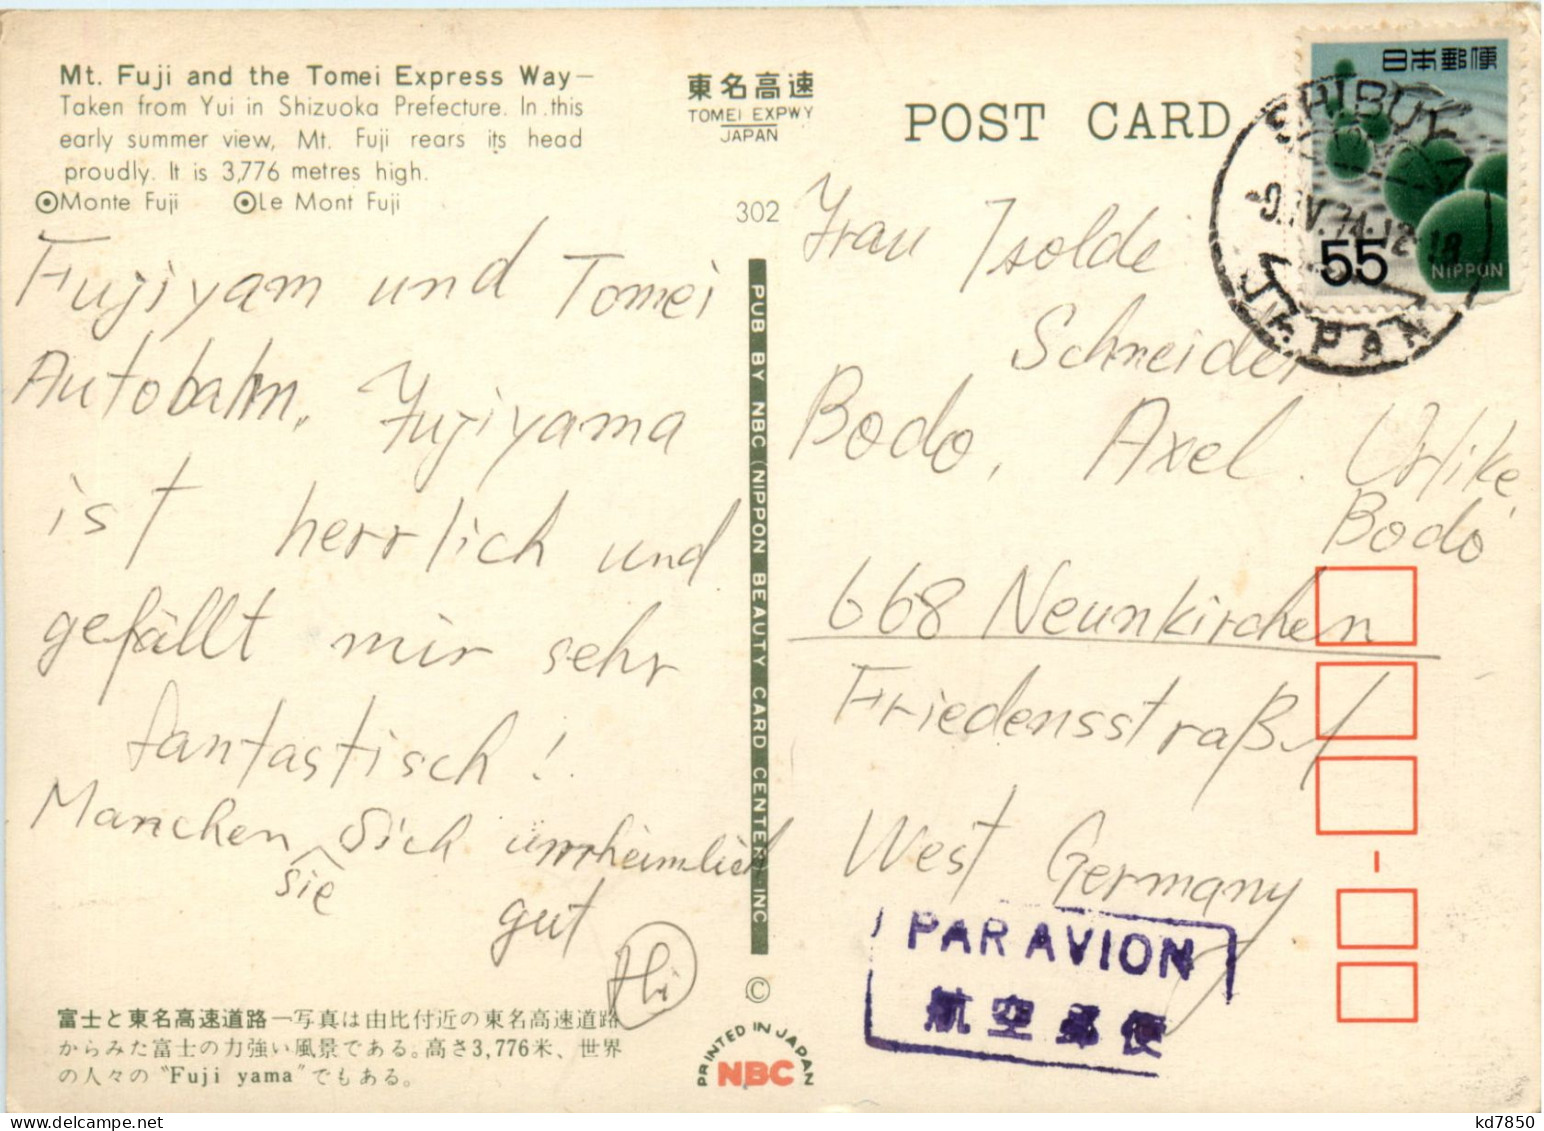 Mt. Fuji and the Tomei Express Way—
Taken from Yui in Shizuoka Prefecture. In this
early summer view, Mt. Fuji rears its head
proudly. It is 3,776 metres high.
Monte Fuji Le Mont Fuji
東名高速
TOMEI EXPWY
JAPAN
302
POST CARD
日本郵便
55
NIPPON
SHIBUYA
.IV.74.12-18
JAPAN
Fujiyam und Tomei
Autobahn. Fujiyama
ist herrlich und
gefällt mir sehr
fantastisch!
Manchen sie Sich
gut
Hi
PUB BY NBC (NIPPON BEAUTY CARD CENTER) INC
©
PRINTED IN JAPAN
NBC
Frau Isolde
Schneider
Bodo, Axel. Ulrike,
Bodo
668 Neunkirchen
Friedensstraß 1
West Germany
PAR AVION
航空郵便
富士と東名高速道路—写真は由比付近の東名高速道路
からみた富士の力強い風景である。高さ3,776米、世界
の人々の“Fuji yama”でもある。
kd7850